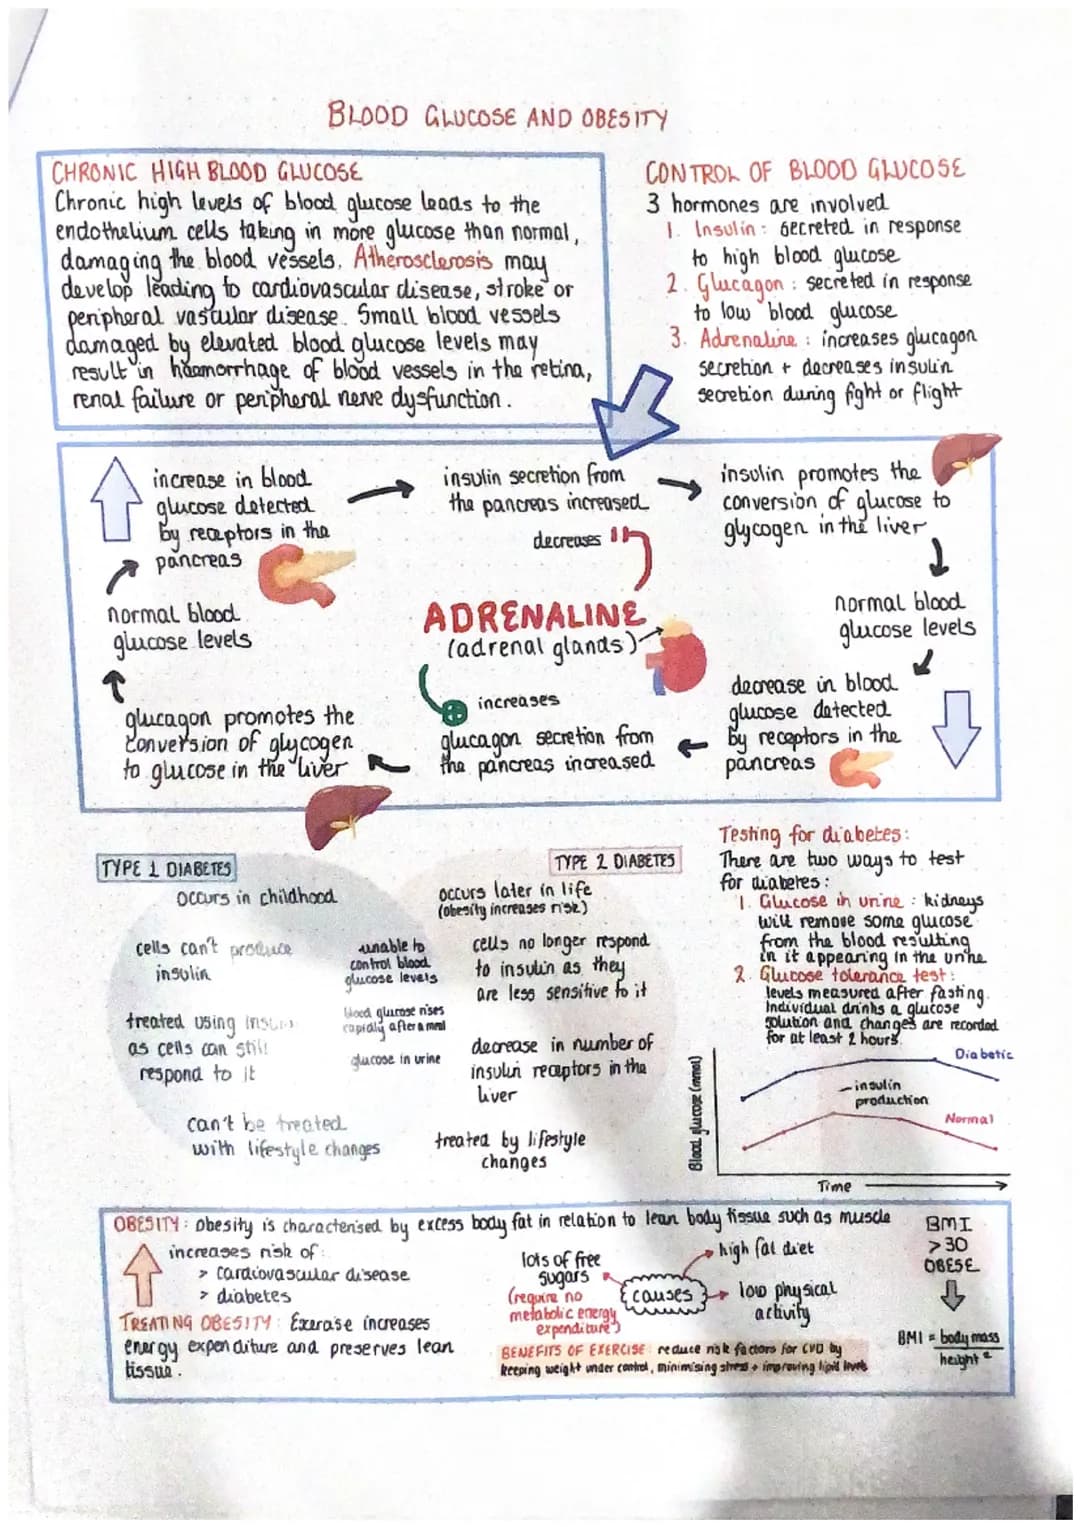 BLOOD GLUCOSE AND OBESITY
CHRONIC HIGH BLOOD GLUCOSE
Chronic high levels of blood glucose leads to the
endothelium cells taking in more glucose than normal,
damaging the blood vessels. Atherosclerosis may
develop leading to cardiovascular disease, stroke or
peripheral vascular disease. Small blood vessels
damaged by elevated blood glucose levels may
result in haemorrhage of blood vessels in the retina,
renal failure or peripheral nerve dysfunction.
CONTROL OF BLOOD GLUCOSE
3 hormones are involved
1. Insulin : secreted in response
to high blood glucose
2. Glucagon : secreted in response
to low blood glucose
3. Adrenaline : increases glucagon
secretion + decreases insulin
secretion during fight or flight
increase in blood
glucose detected
by receptors in the
pancreas
insulin secretion from
the pancreas increased
insulin promotes the
conversion of glucose to
glycogen in the liver
decreases
normal blood
glucose levels
ADRENALINE
(adrenal glands)
normal blood
glucose levels
increases
decrease in blood
glucose detected
by receptors in the
pancreas
glucagon secretion from
the pancreas increased
glucagon promotes the
conversion of glycogen
to glucose in the liver
TYPE 1 DIABETES
occurs in childhood
cells can't produce
insulin
treated using insulin
as cells can still
respond to it
can't be treated
with lifestyle changes
unable to
control blood
glucose levels
blood glucose rises
rapidly after a meal
glucose in urine
TYPE 2 DIABETES
occurs later in life
(obesity increases risk)
cells no longer respond
to insulin as they
are less sensitive to it
decrease in number of
insulin receptors in the
liver
treated by lifestyle
changes
Testing for diabetes:
There are two ways to test
for diabetes:
1. Glucose in urine : kidneys
will remove some glucose
from the blood resulting
in it appearing in the urine
2. Glucose tolerance test:
levels measured after fasting.
Individual drinks a glucose
solution and changes are recorded
for at least 2 hours.
Blood glucose (mmol)
Diabetic
insulin
production
Normal
Time
OBESITY : obesity is characterised by excess body fat in relation to lean body tissue such as muscle
increases risk of:
> cardiovascular disease
> diabetes
TREATING OBESITY : Exercise increases
energy expenditure and preserves lean
tissue.
lots of free
sugars
(require no
metabolic energy
expenditure)
causes
high fat diet
low physical
activity
BENEFITS OF EXERCISE : reduce risk factors for CVD by
keeping weight under control, minimising stress + improving lipid levels
BMI
>30
OBESE
BMI = body mass
height ²